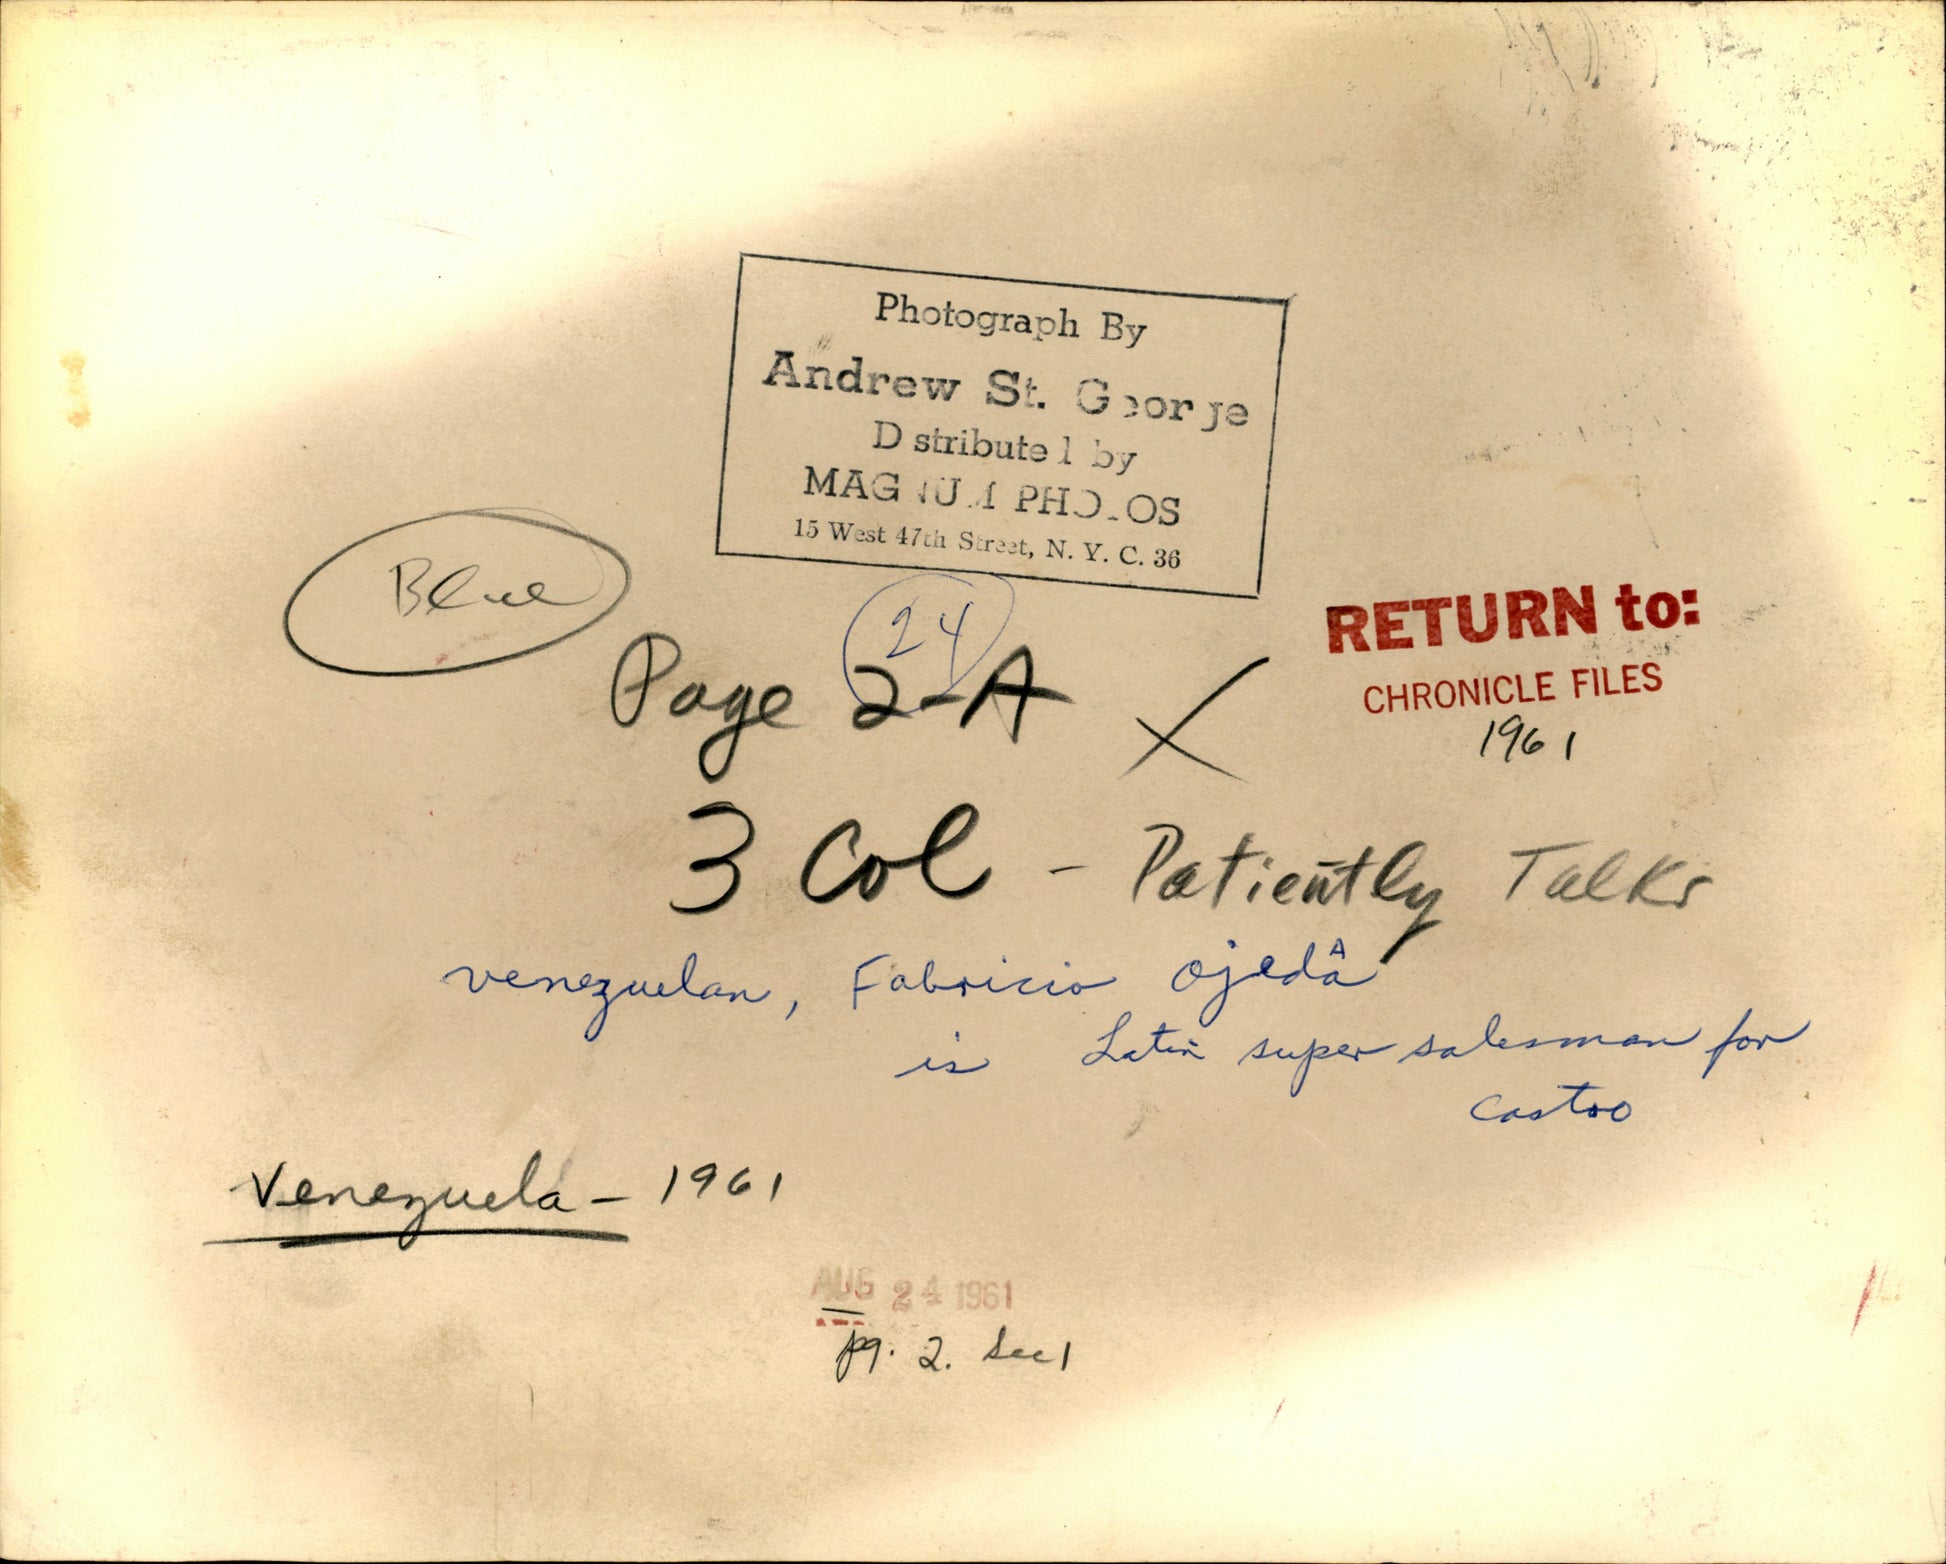 Photograph By
Andrew St. George
Distributed by
MAGNUM PHOTOS
15 West 47th Street, N. Y. C. 36
Blue
24
Page 2-A
RETURN to:
CHRONICLE FILES
1961
3 Col - Patiently Talks
venezuelan, Fabricio Ojeda
A
is Latin super salesman for
Castro
Venezuela - 1961
AUG 24 1961
pg. 2. Sec 1